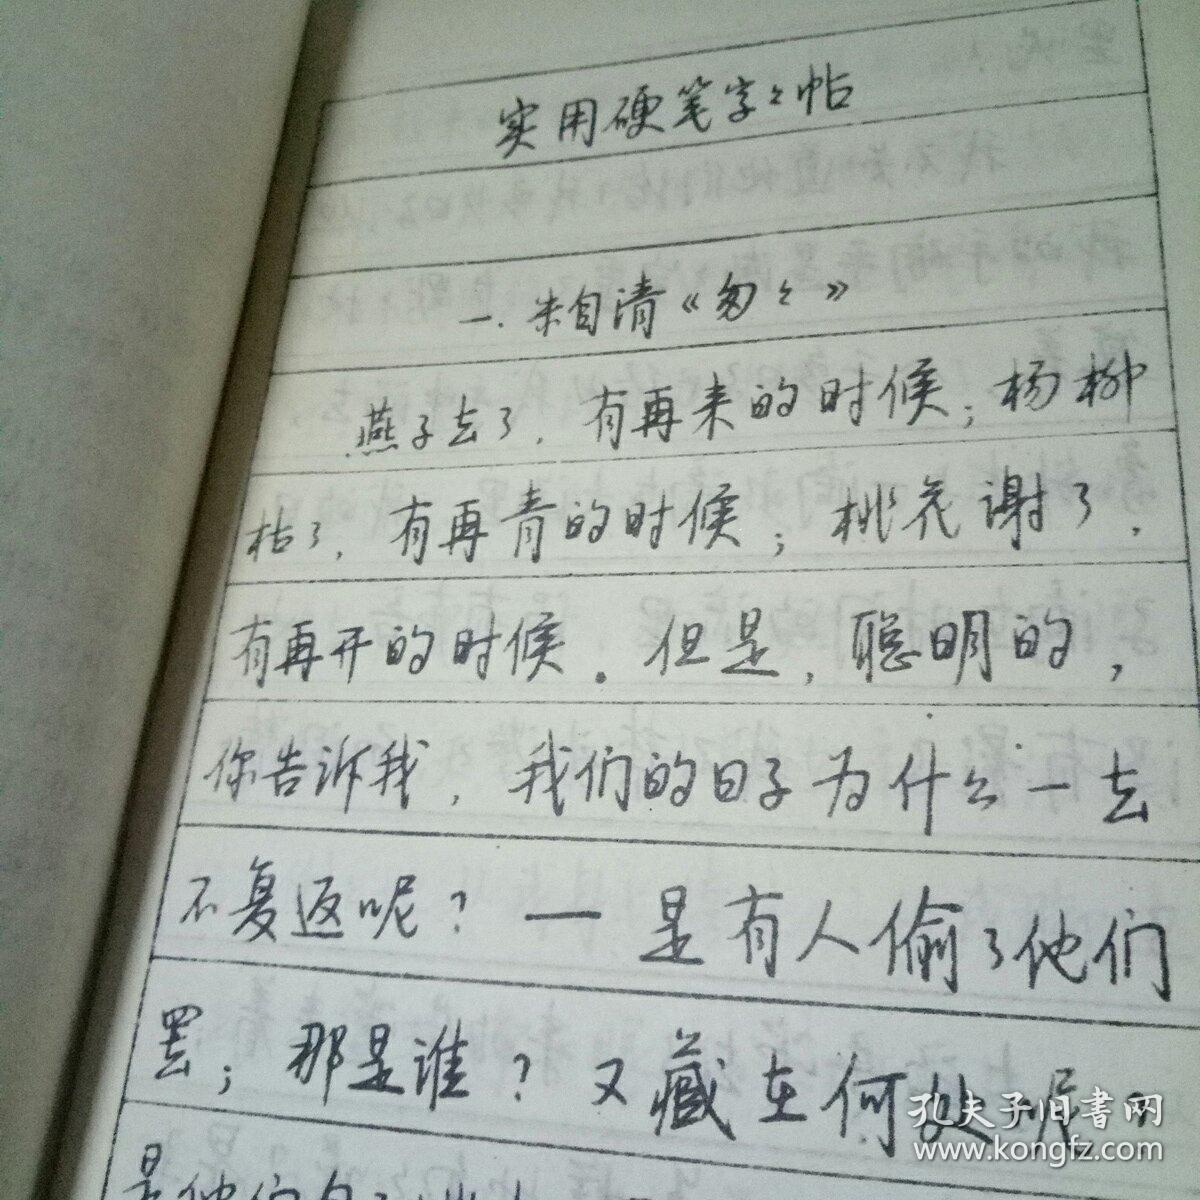 实用硬笔字々帖
一.朱自清《匆々》
燕子去了，有再来的时候；杨柳
枯了，有再青的时候；桃花谢了，
有再开的时候。但是，聪明的，
你告诉我，我们的日子为什么一去
不复返呢？一是有人偷了他们
罢；那是谁？又藏在何处呢？
是他们自
孔夫子旧书网
www.kongfz.com